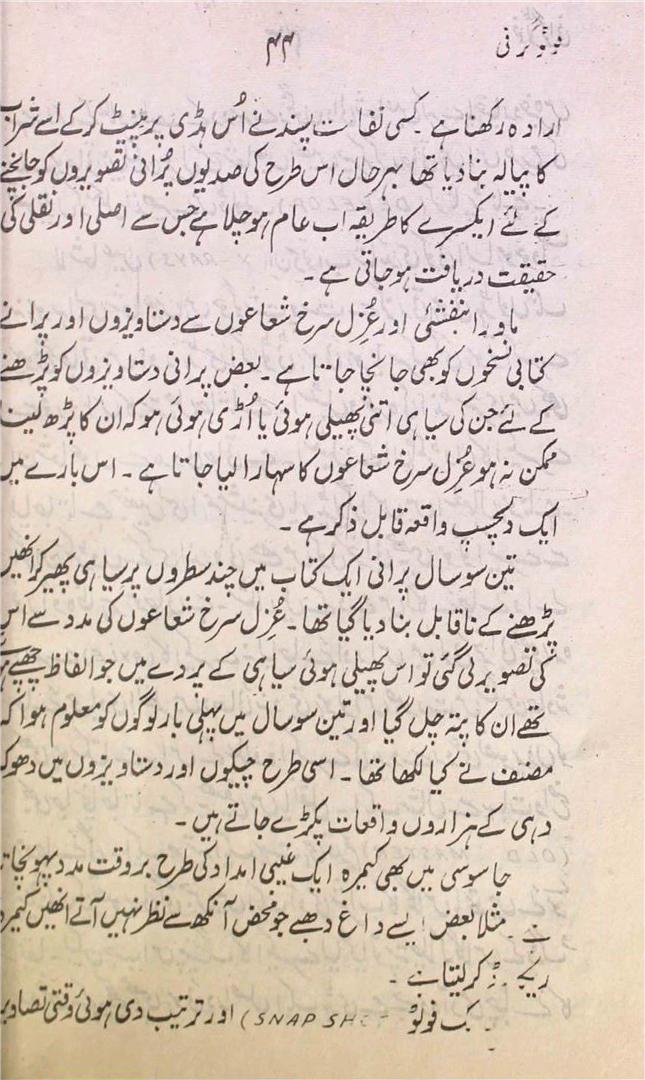 فوٹوگرافی
۴۴
ارادہ رکھنا ہے۔ کسی نفاست پسند نے اُس ہڈی پر پینٹ کر کے اسے شراب
کا پیالہ بنا دیا تھا بہرحال اس طرح کی صدیوں پُرانی تصویروں کو جانچنے
کے لئے ایکسرے کا طریقہ اب عام ہو چلا ہے جس سے اصلی اور نقلی کی
حقیقت دریافت ہو جاتی ہے۔
ماورا بنفشئی اور عُزِل سرخ شعاعوں سے دستاویزوں اور پرانے
کتابی نسخوں کو بھی جانچا جاتا ہے۔ بعض پرانی دستاویزوں کو پڑھنے
کے لئے جن کی سیاہی اتنی پھیلی ہوئی یا اُڑی ہوئی ہو کہ ان کا پڑھ لینا
ممکن نہ ہو عُزِل سرخ شعاعوں کا سہارا لیا جاتا ہے۔ اس بارے میں
ایک دلچسپ واقعہ قابل ذکر ہے۔
تین سو سال پرانی ایک کتاب میں چند سطروں پر سیاہی پھیر کر انھیں
پڑھنے کے ناقابل بنا دیا گیا تھا۔ عُزِل سرخ شعاعوں کی مدد سے اس
کی تصویر لی گئی تو اس پھیلی ہوئی سیاہی کے پردے میں جو الفاظ چھپے
تھے ان کا پتہ چل گیا اور تین سو سال میں پہلی بار لوگوں کو معلوم ہوا کہ
مصنف نے کیا لکھا تھا۔ اسی طرح چیکوں اور دستاویزوں میں دھوکہ
دہی کے ہزاروں واقعات پکڑے جاتے ہیں۔
جاسوسی میں بھی کیمرہ ایک غیبی امداد کی طرح بروقت مدد پہونچاتا
مثلا بعض ایسے داغ دھبے جو محض آنکھ سے نظر نہیں آتے انھیں کیمرہ
کر لیتا ہے۔
فوٹو (SNAP SH اور ترتیب دی ہوئی وقتی تصاویر